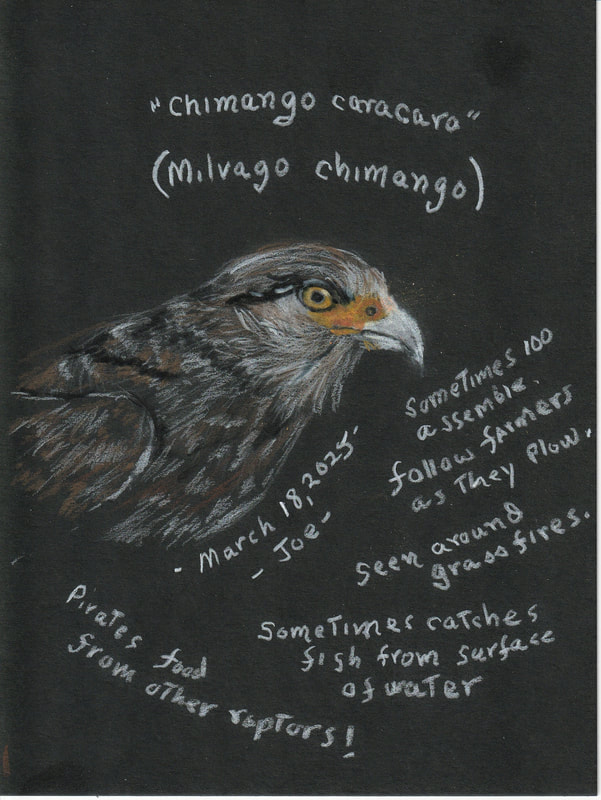 "Chimango caracara"
(Milvago chimango)
Sometimes 100
assemble.
follow farmers
as They plow.
seen around
grassfires.
- March 18, 2025 -
- Joe -
Sometimes catches
fish from surface
of water
Pirates food
from other raptors!